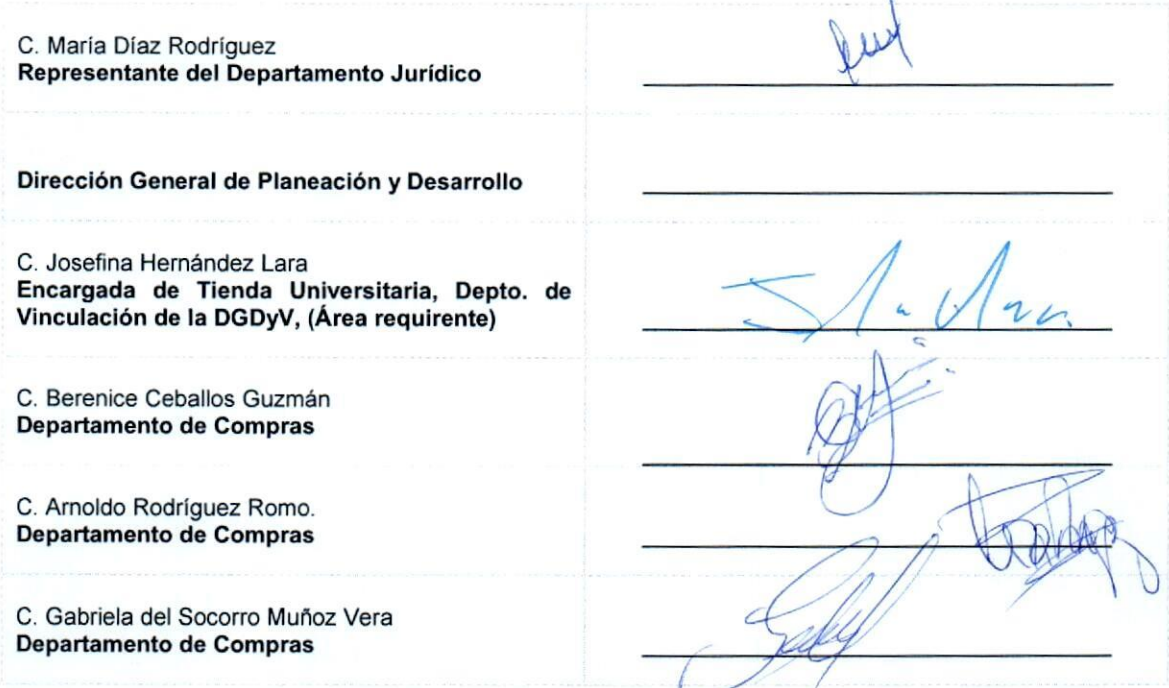 C. María Díaz Rodríguez
Representante del Departamento Jurídico
Dirección General de Planeación y Desarrollo
C. Josefina Hernández Lara
Encargada de Tienda Universitaria, Depto. de
Vinculación de la DGDyV, (Área requirente)
C. Berenice Ceballos Guzmán
Departamento de Compras
C. Arnoldo Rodríguez Romo.
Departamento de Compras
C. Gabriela del Socorro Muñoz Vera
Departamento de Compras